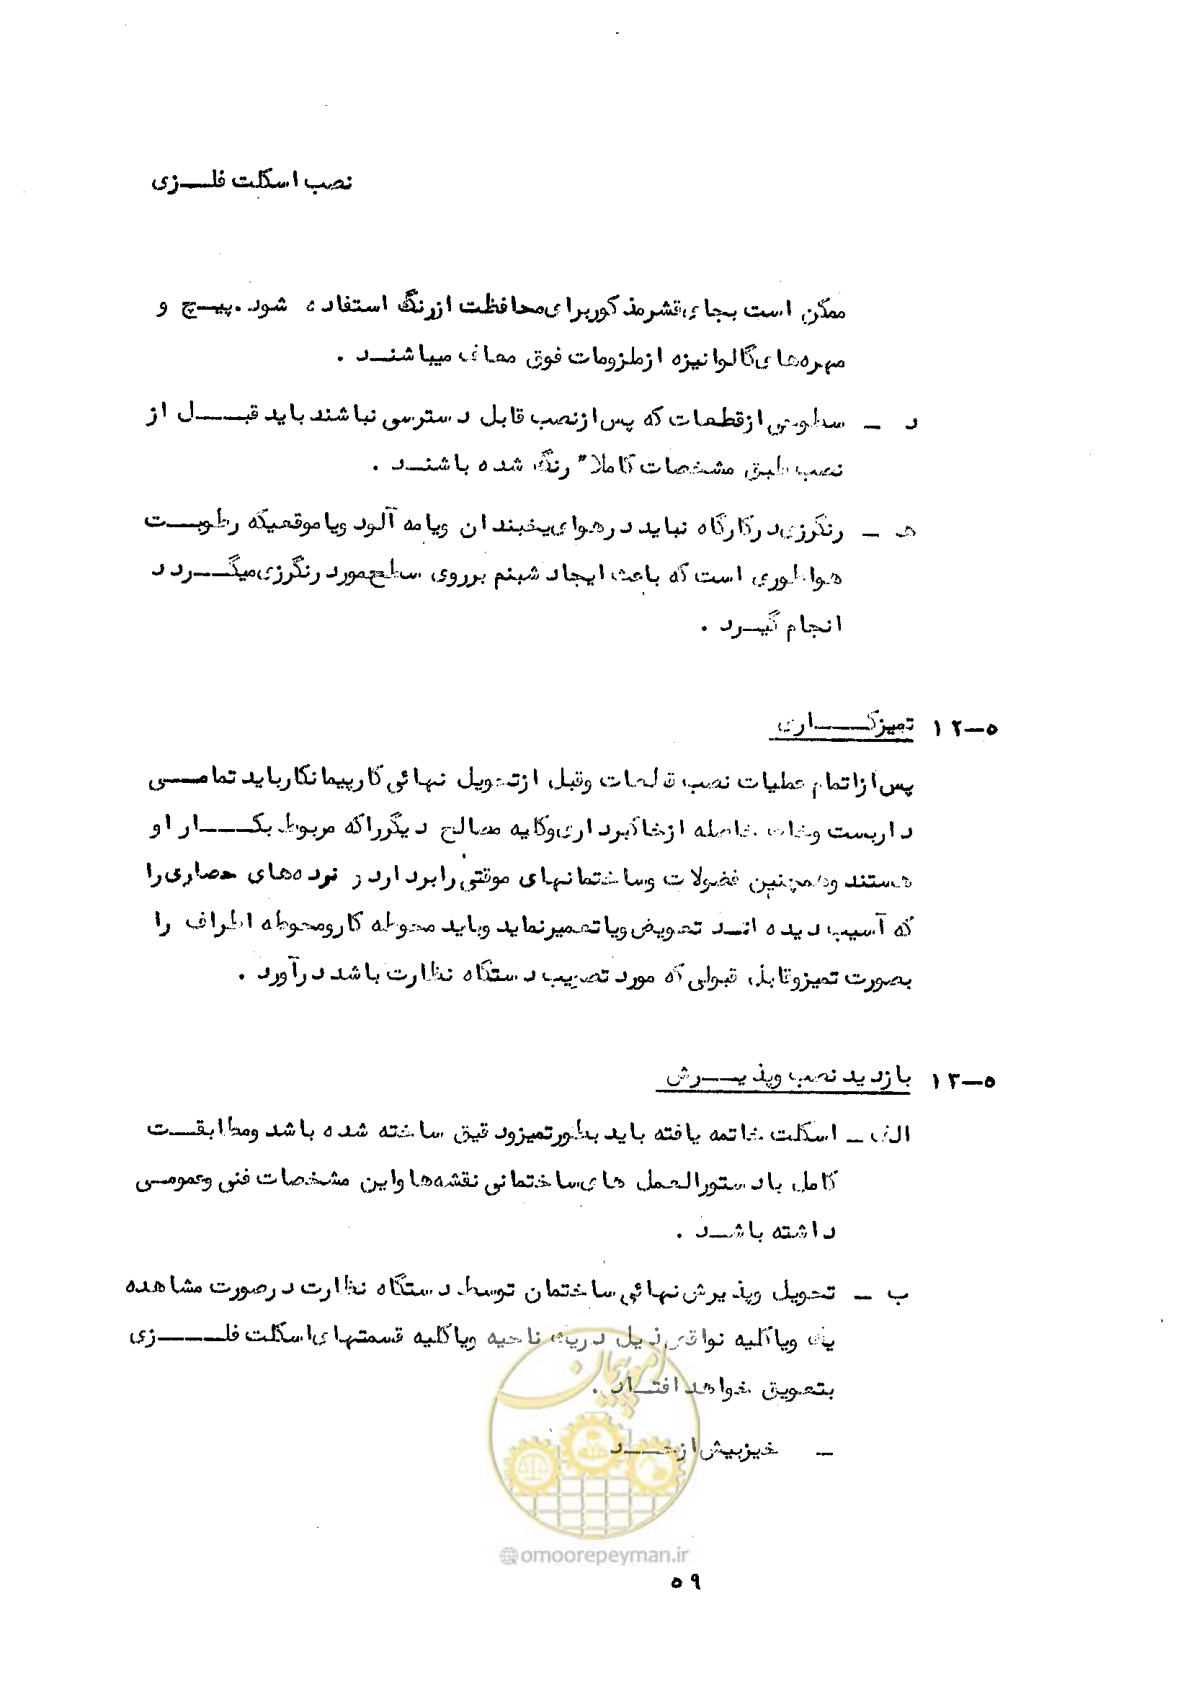 نصب اسکلت فلــزی
ممکن است بجای قشرمذکوربرای محافظت ازرنگ استفاده شود.پیــچ و
مهره‌های گالوانیزه ازملزومات فوق معاف میباشنــد .
د ــ سطوحی ازقطعات که پس ازنصب قابل دسترسی نباشند باید قبــل از
نصب طبق مشخصات کاملا" رنگ شده باشنــد .
هـ ــ رنگرزی درکارگاه نباید درهوای یخبندان ویامه آلود ویاموقعیکه رطوبــت
هواطوری است که باعث ایجاد شبنم برروی سطح مورد رنگرزی میگــردد
انجام گیــرد .
۵ــ۱۲ تمیزکــاری
پس ازاتمام عملیات نصب قطعات وقبل ازتحویل نهائی کارپیمانکارباید تمامــی
داربست وخاک حاصله ازخاکبرداری وکلیه مصالح دیگرراکه مربوط بکــار او
هستند وهمچنین فضولات وساختمانهای موقتی رابردارد و نرده‌های حصاری را
که آسیب دیده انــد تعویض ویاتعمیرنماید وباید محوطه کارومحوطه اطراف را
بصورت تمیزوقابل قبولی که مورد تصویب دستگاه نظارت باشد درآورد .
۵ــ۱۳ بازدید نصب وپذیــرش
الف ــ اسکلت خاتمه یافته باید بطورتمیزودقیق ساخته شده باشد ومطابقــت
کامل بادستورالعمل های ساختمانی نقشه‌ها واین مشخصات فنی وعمومــی
داشته باشــد .
ب ــ تحویل وپذیرش نهائی ساختمان توسط دستگاه نظارت درصورت مشاهده
یک ویاکلیه نواقص ذیل دریک ناحیه ویاکلیه قسمتهای اسکلت فلــزی
بتعویق خواهد افتــاد .
ــ خیزبیش ازحــد
امور پیمان
@omoorepeyman.ir
۵۹